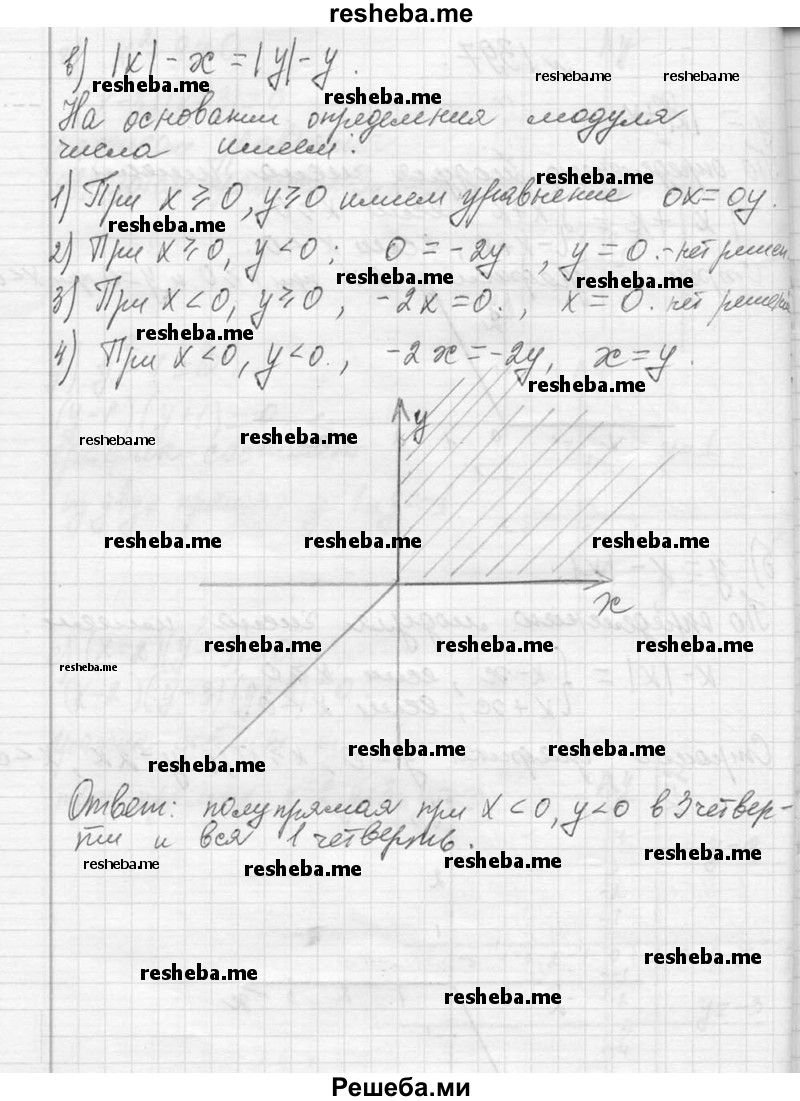 resheba.me
в) |x| - x = |y| - y.
resheba.me resheba.me resheba.me resheba.me
На основании определения модуля
числа имеем:
resheba.me
1) При x ⩾ 0, y ⩾ 0 имеем уравнение 0x = 0y.
resheba.me
2) При x ⩾ 0, y < 0; 0 = -2y, y = 0. - нет решен
resheba.me resheba.me
3) При x < 0, y ⩾ 0, -2x = 0., x = 0. нет решен
resheba.me
4) При x < 0, y < 0., -2x = -2y, x = y.
resheba.me
y
resheba.me resheba.me
resheba.me resheba.me resheba.me
x
resheba.me resheba.me resheba.me
resheba.me
resheba.me resheba.me
resheba.me
Ответ: полупрямая при x < 0, y < 0 в 3 четвер-
ти и вся 1 четверть.
resheba.me resheba.me resheba.me resheba.me
resheba.me resheba.me
resheba.me
Решеба.ми